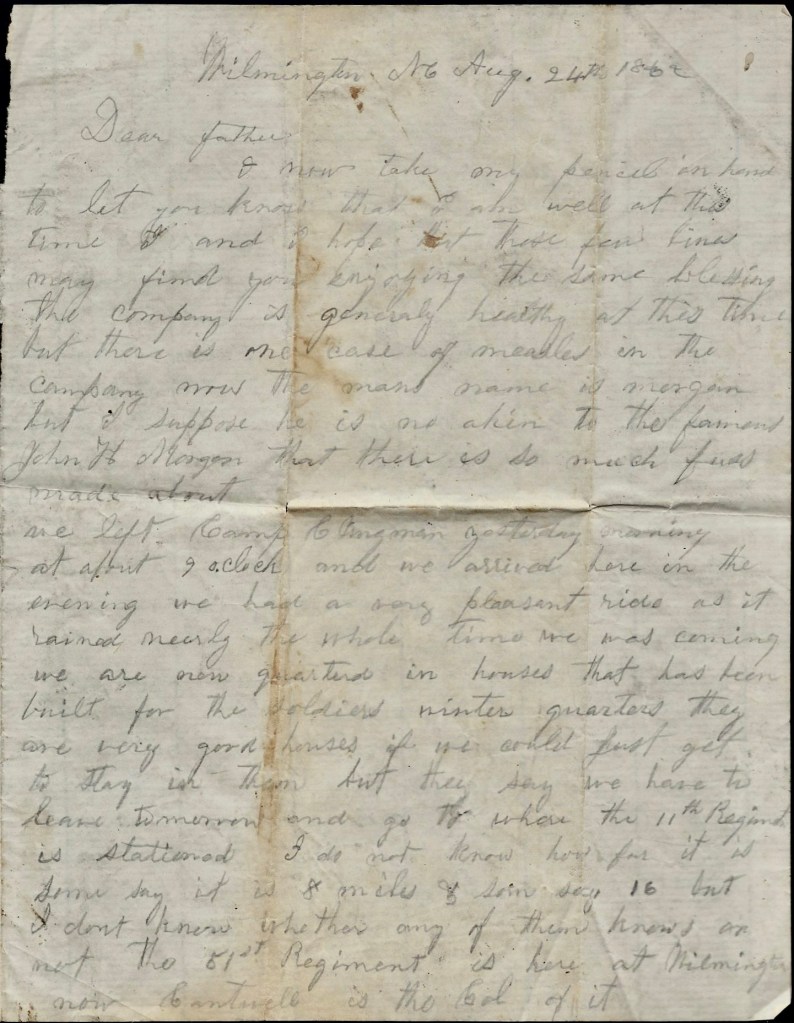 Wilmington NC Aug. 24th 1862
Dear father
I now take my pencil in hand
to let you know that I am well at this
time I and I hope that those few lines
may find you enjoying the same blessing
the company is generaly healthy at this time
but there is one case of measles in the
company now the mans name is morgan
but I suppose he is no akin to the famous
John H Morgan that there is so much fuss
made about
we left Camp Clingman yesterday morning
at about 9 o.clock and we arrived here in the
evening we had a very pleasant ride as it
rained nearly the whole time we was coming
we are now quarterd in houses that has been
built for the soldiers winter quarters they
are very good houses if we could just get
to stay in them but they say we have to
leave tomorrow and go to where the 11th Regiment
is stationed I do not know how far it is
some say it is 8 miles & som say 16 but
I dont know whether any of them knows or
not the 51st Regiment is here at Wilmington
now Cantwell is the Col of it